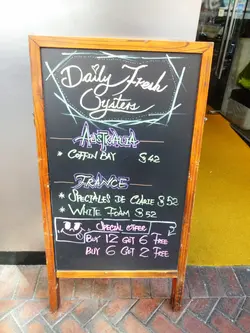 Daily Fresh
Oysters
AUSTRALIA
* COFFIN BAY $42
FRANCE
* SPECIALES DE CLAIRE $52
* WHITE FOAM $52
SPECIAL OFFER
BUY 12 GET 6 FREE
BUY 6 GET 2 FREE